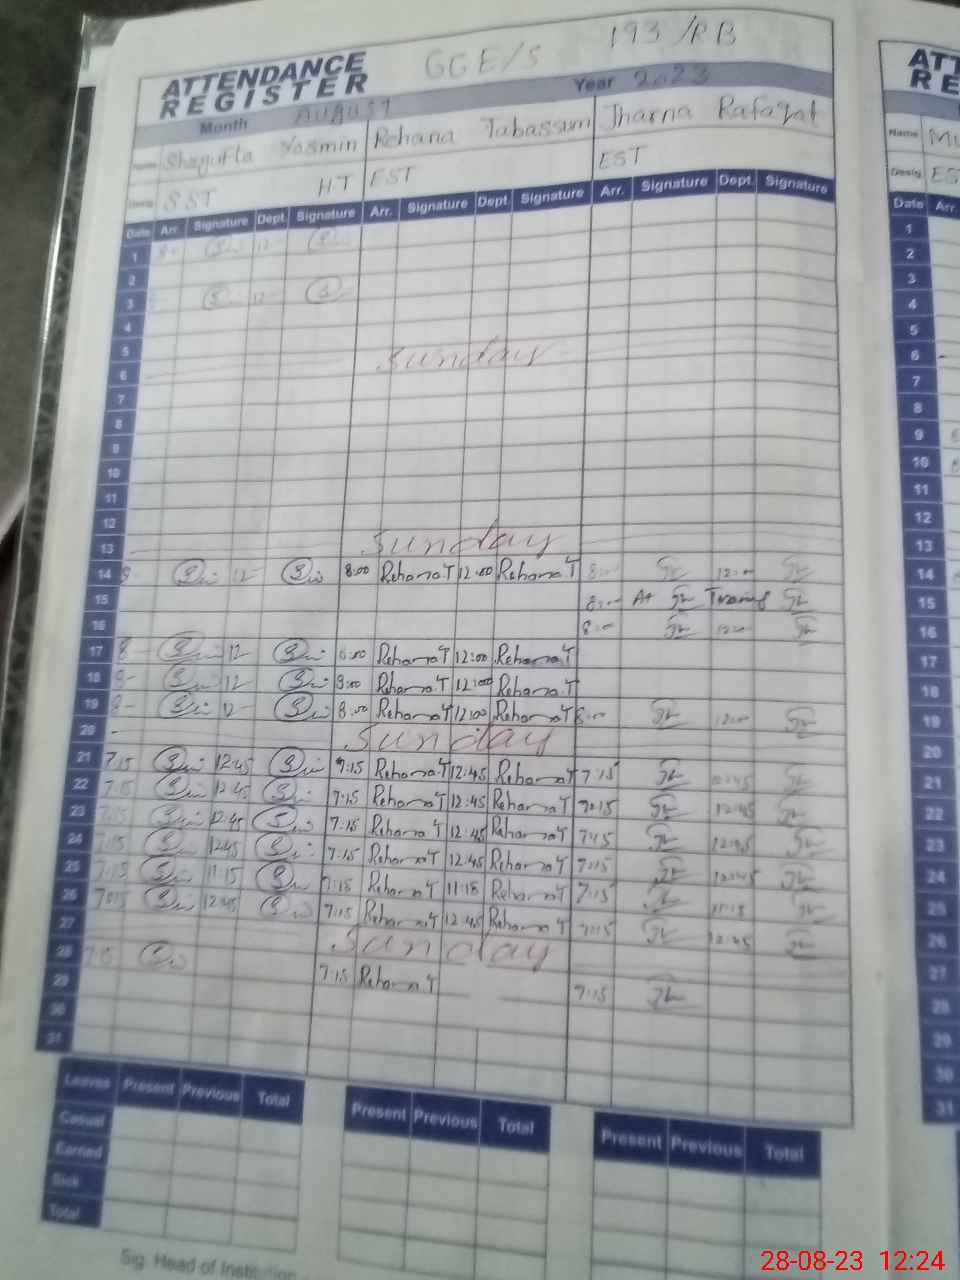 193/RB
GGE/S
ATTENDANCE
REGISTER
Month AUGUST Year 2023
Name Shagufta Yasmin Rehana Tabassum Jharna Rafaqat
Desig SST H.T EST EST
Date Arr. Signature Dept. Signature Arr. Signature Dept. Signature Arr. Signature Dept. Signature
1 8- 12-
2
3 12-
4
5
6 Sunday
7
8
9
10
11
12
13 Sunday
14 8- 12- 8:00 Rehana.T 12:00 Rehana.T 8:00 12:00
15 8:00 At Trang
16 8:00 12:00
17 8- 12- 8:00 Rehana.T 12:00 Rehana.T
18 8- 12- 8:00 Rehana.T 12:00 Rehana.T
19 8- 12- 8:00 Rehana.T 12:00 Rehana.T 8:00 12:00
20 Sunday
21 7:15 12:45 7:15 Rehana.T 12:45 Rehana.T 7:15 12:45
22 7:15 12:45 7:15 Rehana.T 12:45 Rehana.T 7:15 12:45
23 7:15 12:45 7:15 Rehana.T 12:45 Rehana.T 7:15 12:45
24 7:15 12:45 7:15 Rehana.T 12:45 Rehana.T 7:15 12:45
25 7:15 11:15 7:15 Rehana.T 11:15 Rehana.T 7:15 11:15
26 7:15 12:45 7:15 Rehana.T 12:45 Rehana.T 7:15 12:45
27 Sunday
28 7:15 7:15 Rehana.T 7:15
29
30
31
Leaves Present Previous Total Present Previous Total Present Previous Total
Casual
Earned
Sick
Total
Sig. Head of Institution
AT
RE
Name Mu
Desig. ES
Date Arr
1
2
3
4
5
6
7
8
9
10
11
12
13
14
15
16
17
18
19
20
21
22
23
24
25
26
27
28
29
30
31
28-08-23 12:24